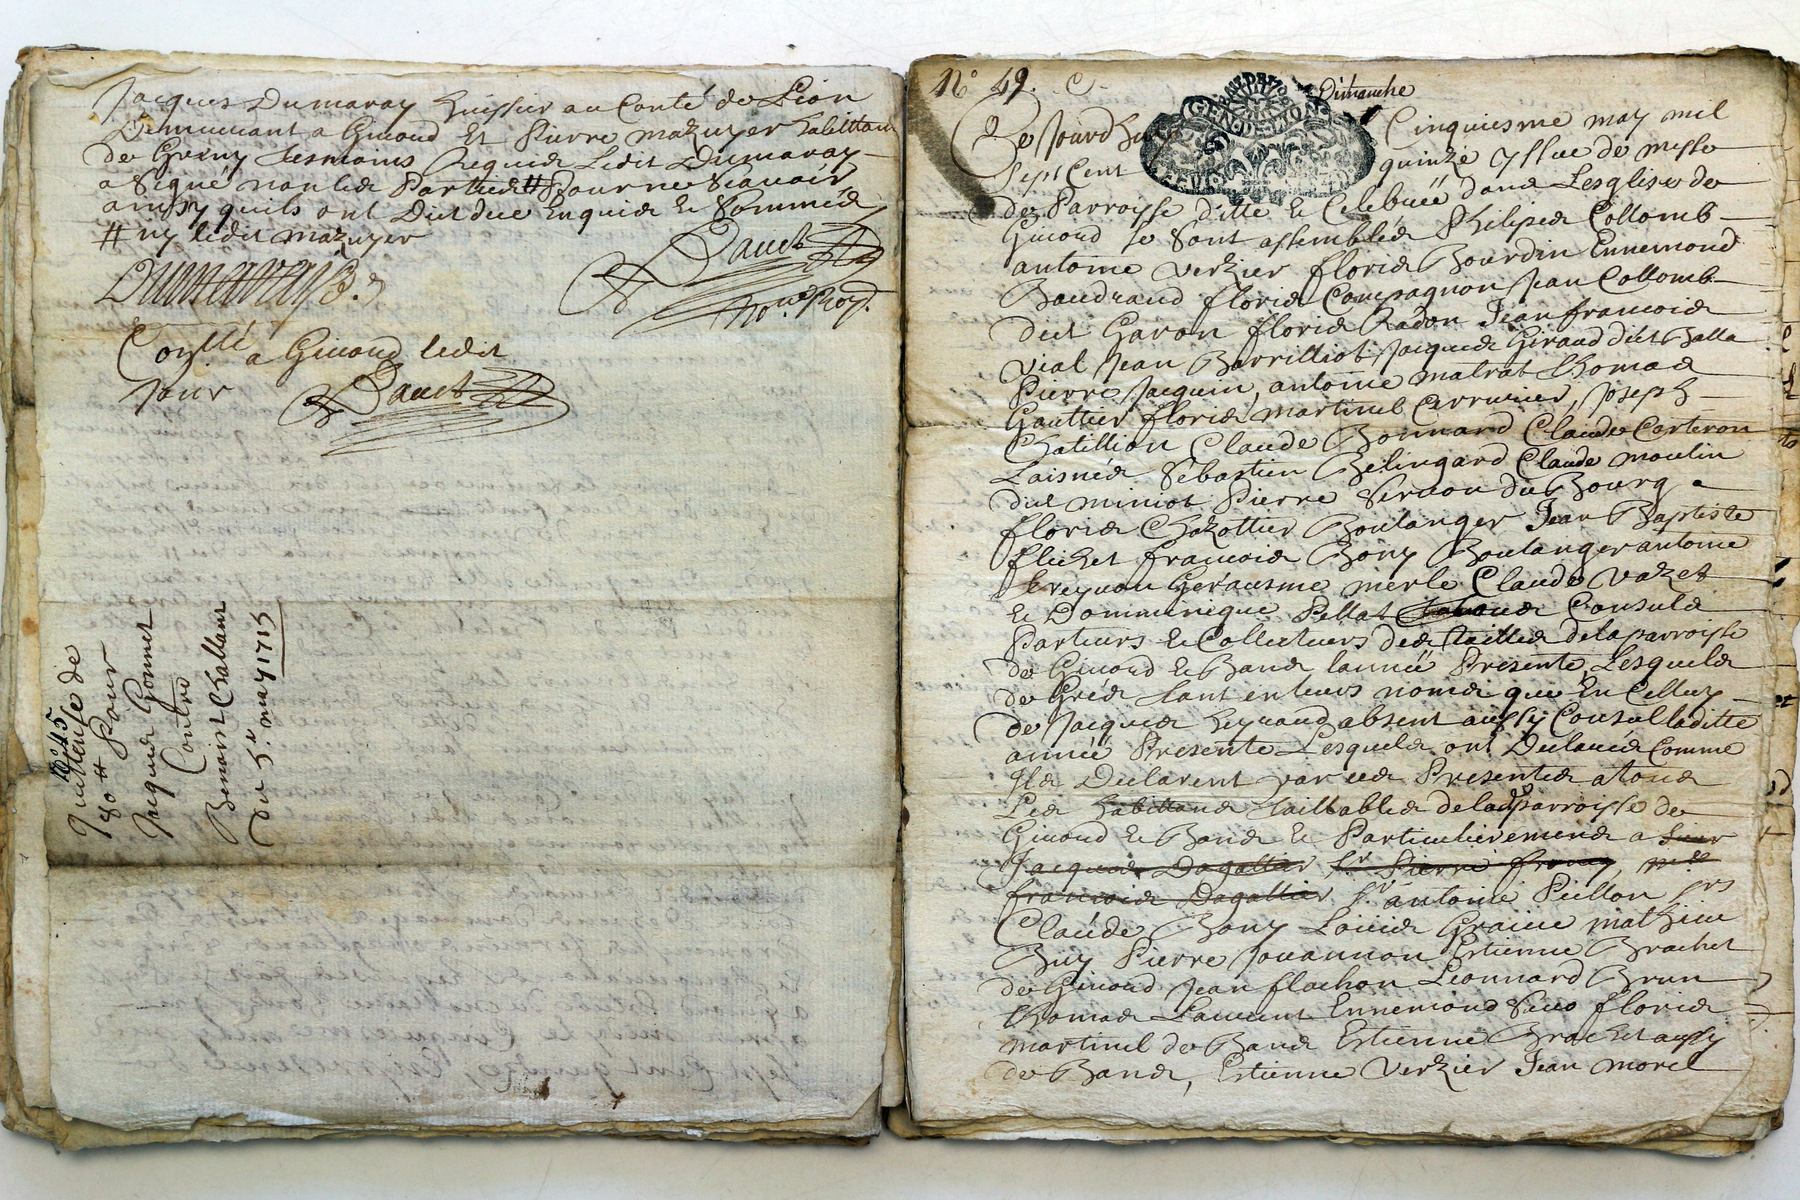 Jacques Dumaray huissier au Conté de Lion
Demeurant a Givord Et Pierre mazuyer habittan
de Griny tesmoins Requis Ledit Dumaray
a Signé non les Parties # Pour ne Scauoir
ainsy quils ont Dict due Enquis Et Sommés
# ny ledit mazuyer
Dumaray
Dauch
No.re Roy.
Con.llé a Givord ledit
Jour Dauch
N° 45
Quittense de
80 # Pour
Jacques Gonnet
Contre
Benoist Challans
Du 5.e may 1715
N° 49. C.
GEN. DE LION
Dimanche
Ce Jourdhuy Cinquiesme may mil
Sept Cent quinze yssue de messe
de Parroisse ditte Et Celebréé dans Lesglise de
Givord Se Sont assemblés Philipes Collomb
antoine Verzier floris Bourdin Ennemond
Baudrand floris Compagnon Jean Collomb
dict Garon floris Radon Jean francois
Vial Jean Barrilliot Jacques Giraud dict Balla
Pierre Jacquin, antoine matrat thomas
Gauttier floris martinel Cerrurier, Joseph
Chatillion Claude Bonnard Claude Carteron
Laisnés Sébastien Belingard Claude moulin
dict miniot Pierre Vernon du Bourg
floris Chazottier Boulanger Jean Baptiste
flichet francois Bony Boulanger antoine
Gerausme merle Claude Vazet
Et Domminique Pellat Consuls
Parteurs Et Collecteurs des tailles de la parroisse
de Givord Et Bans lannéé Presente Lesquels
de Grés tant en leurs noms que En Celluy
de Jacques Reynaud absent aussy Consul laditte
année Presente Lesquels ont Declarés Comme
Ils Declarent par ces Presentes a tous
Les habittans taillables de lad parroisse de
Givord Et Bans Et Particulierement a Sieur
Jacques Dagallier Sr Pierre
francois Dagallier Sr antoine Pitton
Claude Bony Louis Graine mathieu
Buy Pierre Jouannon Estienne Brachet
de Givord Jean flachon Leonnard Brun
thomas Laurent Ennemond Seuo floris
martinel de Bans Estienne Brachet aussy
de Bans, Estienne Verzier Jean morel